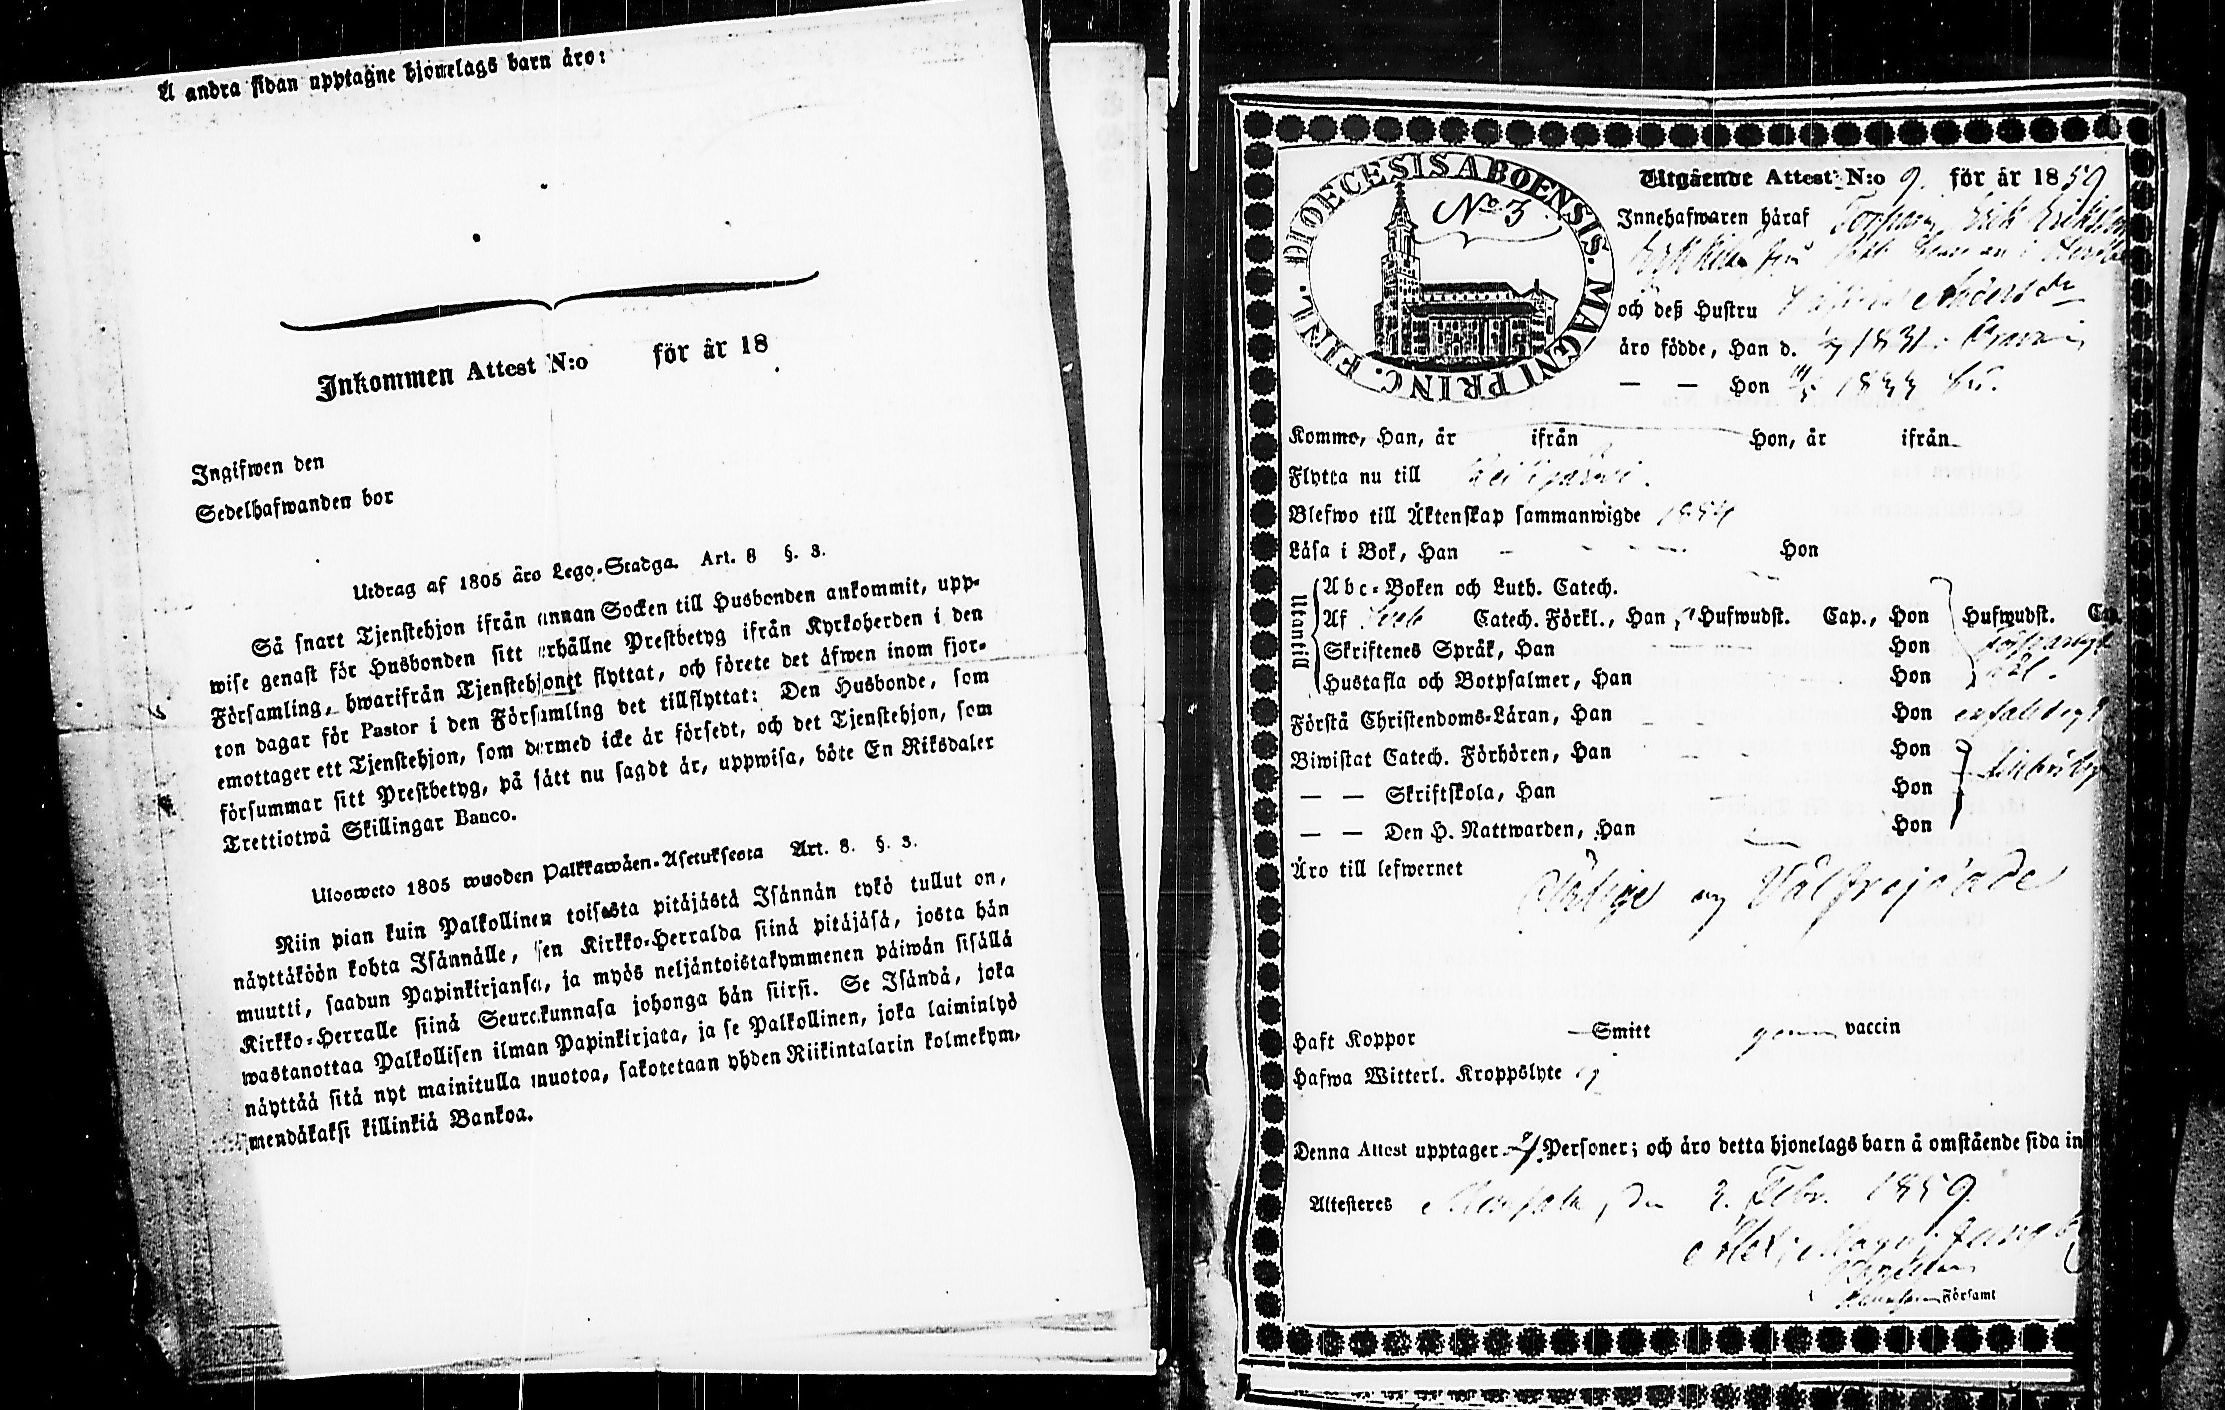 Å andra sidan upptagne hjonelags barn äro:
Inkommen Attest N:o för år 18
Ingifwen den
Sedelhafwanden bor
Utdrag af 1805 års Lego-Stadga. Art. 8 §. 3.
Så snart Tjenstehjon ifrån annan Socken till Husbonden ankommit, upp-
wise genast för Husbonden sitt erhållne Prestbetyg ifrån Kyrkoherden i den
Församling, hwarifrån Tjenstehjonet flyttat, och förete det äfwen inom fjor-
ton dagar för Pastor i den Församling det tillflyttat: Den Husbonde, som
emottager ett Tjenstehjon, som dermed icke är försedt, och det Tjenstehjon, som
försummar sitt Prestbetyg, på sätt nu sagdt är, uppwisa, böte En Riksdaler
Trettiotwå Skillingar Banco.
Ulosweto 1805 wuoden Palkkawäen-Asetuksesta Art. 8. §. 3.
Niin pian kuin Palkollinen toisesta pitäjästä Isännän tykö tullut on,
näyttäköön kohta Isännälle, sen Kirkko-Herralda siinä pitäjäsä, josta hän
muutti, saadun Papinkirjansa, ja myös neljäntoistakymmenen päiwän sisällä
Kirkko-Herralle siinä Seurakunnasa johonga hän siirsi. Se Isändä, joka
wastanottaa Palkollisen ilman Papinkirjata, ja se Palkollinen, joka laiminlyö
näyttää sitä nyt mainitulla muotoa, sakotetaan yhden Riikintalarin kolmekym-
mendäkaksi killinkiä Bankoa.
DIOECESIS ABOENSIS. MAGNI PRINC. FINL.
No 3
Utgående Attest N:o 9. för år 1859
Innehafwaren häraf Torpare Erik Eriksson
och deß Hustru Andersdr
äro födde, Han d. 1831
— — Hon 1833
Komme, Han, år ifrån Hon, år ifrån
Flytta nu till
Blefwo till Äktenskap sammanwigde 1854
Läsa i Bok, Han Hon
Utantill
Abc-Boken och Luth. Catech.
Af Catech. Förkl., Han Hufwudst. Cap., Hon Hufwudst. Cap.
Skriftenes Språk, Han Hon
Hustafla och Botpsalmer, Han Hon
Förstå Christendoms-Läran, Han Hon
Biwistat Catech. Förhören, Han Hon
— — Skriftskola, Han Hon
— — Den H. Nattwarden, Han Hon
Äro till lefwernet Ärlige og Välfrejdade
Haft Koppor Smitt genom vaccin
Hafwa Witterl. Kroppslyte ej
Denna Attest upptager Personer; och äro detta hjonelags barn å omstående sida in
Altesteres den 2. Febr. 1859.
Församl